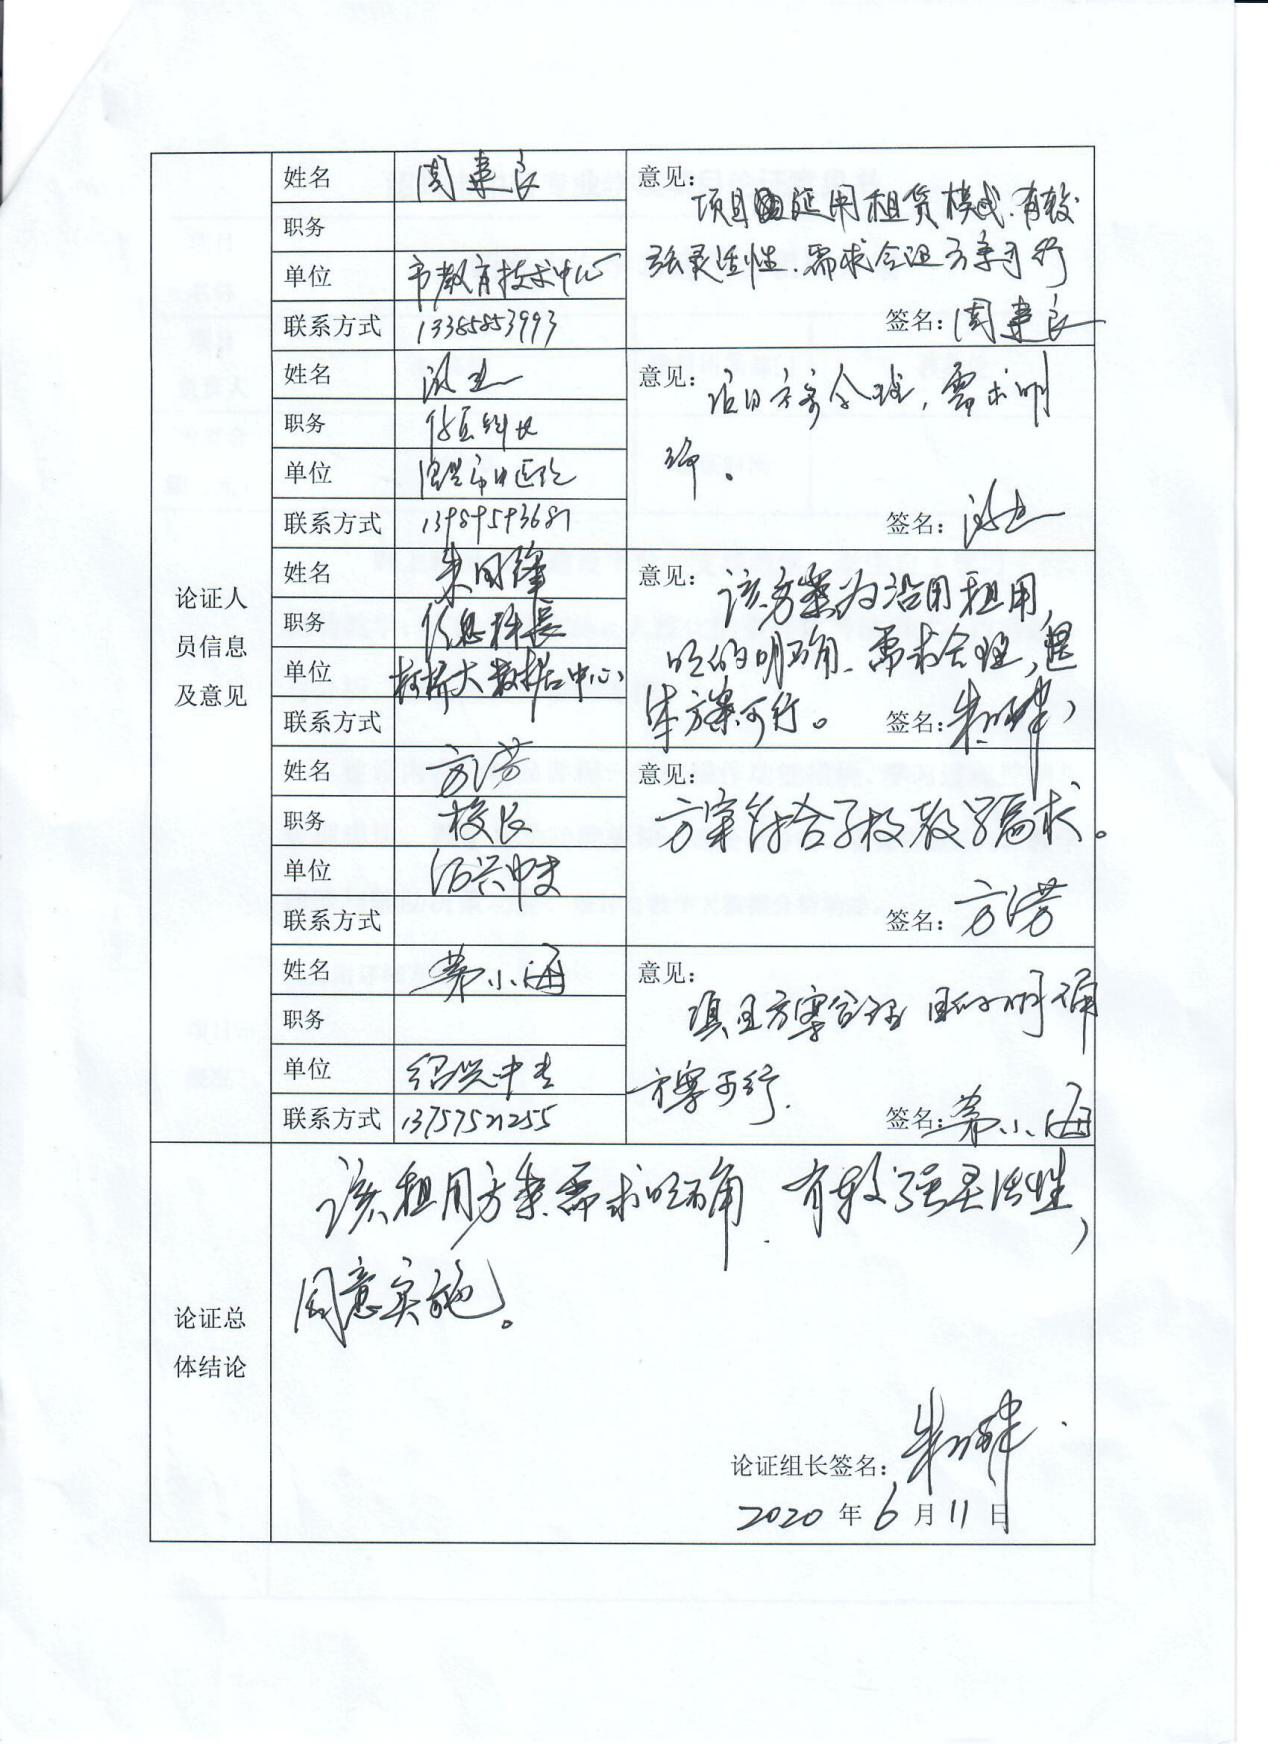 论证人
员信息
及意见
姓名 周建良
职务
单位 市教育技术中心
联系方式 13385853993
意见:
项目延用租赁模式、有较
强灵活性、需求合理方案可行
签名: 周建良
姓名
职务 信息科长
单位 绍兴市中医院
联系方式 13989593681
意见:
项目方案合理,需求明
确。
签名:
姓名
职务 信息科长
单位 柯桥大数据中心
联系方式
意见:
该方案为沿用租用,
目的明确、需求合理,整
体方案可行。
签名:
姓名 方芳
职务 校长
单位 绍兴中专
联系方式
意见:
方案符合学校教学需求。
签名: 方芳
姓名 茅小海
职务
单位 绍兴中专
联系方式 13757521255
意见:
项目方案合理 目的明确
方案可行.
签名: 茅小海
论证总
体结论
该租用方案需求明确.有较强灵活性,
同意实施。
论证组长签名:
2020 年 6 月 11 日